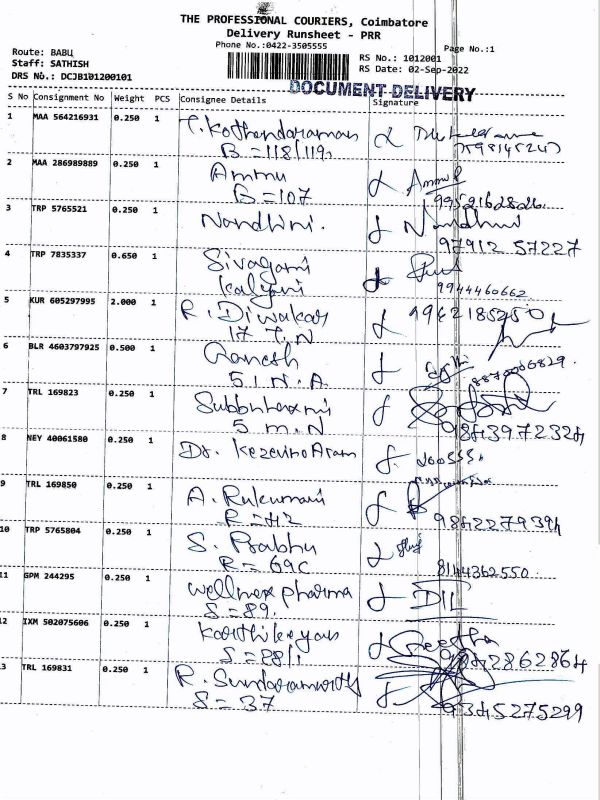 THE PROFESSIONAL COURIERS, Coimbatore
Delivery Runsheet - PRR
Phone No.:0422-3505555
Page No.:1
Route: BABU
Staff: SATHISH
DRS No.: DCJB101200101
RS No.: 1012001
RS Date: 02-Sep-2022
DOCUMENT DELIVERY
S No Consignment No Weight PCS Consignee Details Signature
1 MAA 564216931 0.250 1 T. Kothandaraman
B = 118/119.
2 MAA 286989889 0.250 1 Ammu
B = 107
9952162826
3 TRP 5765521 0.250 1 Nandhini. Nandhini
97912 57227
4 TRP 7835337 0.650 1 Sivagami
Kalyani
9944460662
5 KUR 605297995 2.000 1 R. Diwakar
17 T. N
6 BLR 4603797925 0.500 1 Ganesh
5 I. N. A
7 TRL 169823 0.250 1
5 m. N
9843972324
8 NEY 40061580 0.250 1 Dr.
9 TRL 169850 0.250 1 A. Rukumani
R = 42
9842279394
10 TRP 5765804 0.250 1 S. Prabhu
R = 69C
8144362550
11 GPM 244295 0.250 1 wellmex pharma
S = 89.
12 IXM 502075606 0.250 1 Karthikeyan Geetha
S = 88/1
9842862864
13 TRL 169831 0.250 1 R.
S = 37
9345275299